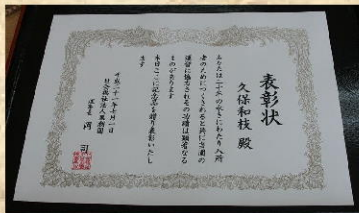 表彰状
久保和枝 殿
あなたは二十六年の永きにわたり入所
者のためにつくされると共に当園の
運営に協力されその功績は顕著なる
ものがあります
本日ここに記念品を贈り表彰いたし
ます
平成二十一年七月一日
社会福祉法人